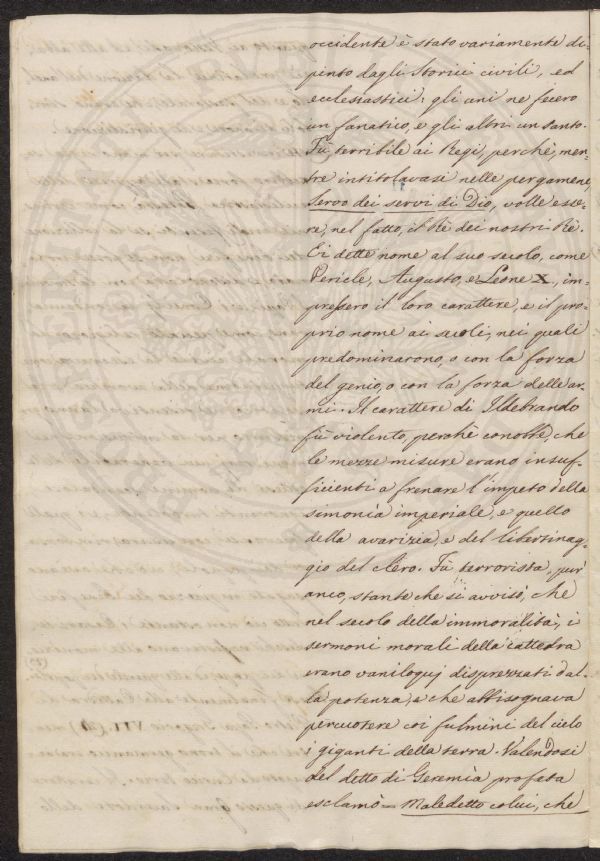 occidente è stato variamente di-
pinto dagli Storici civili, ed
ecclesiastici: gli uni ne fecero
un fanatico, e gli altri un santo.
Fù, terribile ai Regi, perchè, men-
tre intitolavasi nelle pergamene
Servo dei servi di Dio, volle esse-
re, nel fatto, il Rè dei nostri Rè.
Ei dette nome al suo secolo, come
Pericle, Augusto, e Leone X., im-
pressero il loro carattere, e il pro-
prio nome ai secoli, nei quali
predominarono, o con la forza
del genio, o con la forza delle ar-
mi. Il carattere di Ildebrando
fù violento, perchè conobbe, che
le mezze misure erano insuf-
ficienti a frenare l'impeto della
simonìa imperiale, e quello
della avarizia, e del libertinag-
gio del clero. Fù terrorista, pur
anco, stante che si avvisò, che
nel secolo della immoralità, i
sermoni morali della cattedra
erano vaniloquj disprezzati dal-
la potenza, e che abbisognava
percuotere coi fulmini del cielo
i giganti della terra. Valendosi
del detto di Geremìa profeta
esclamò = Maledetto colui, che